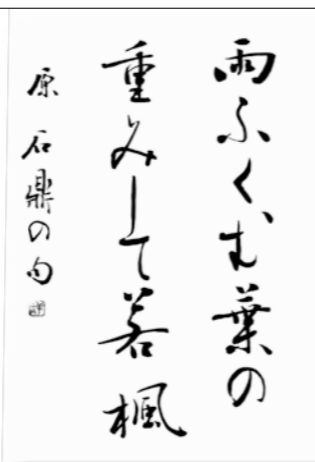 雨ふくむ葉の
重みして若楓
原石鼎の句